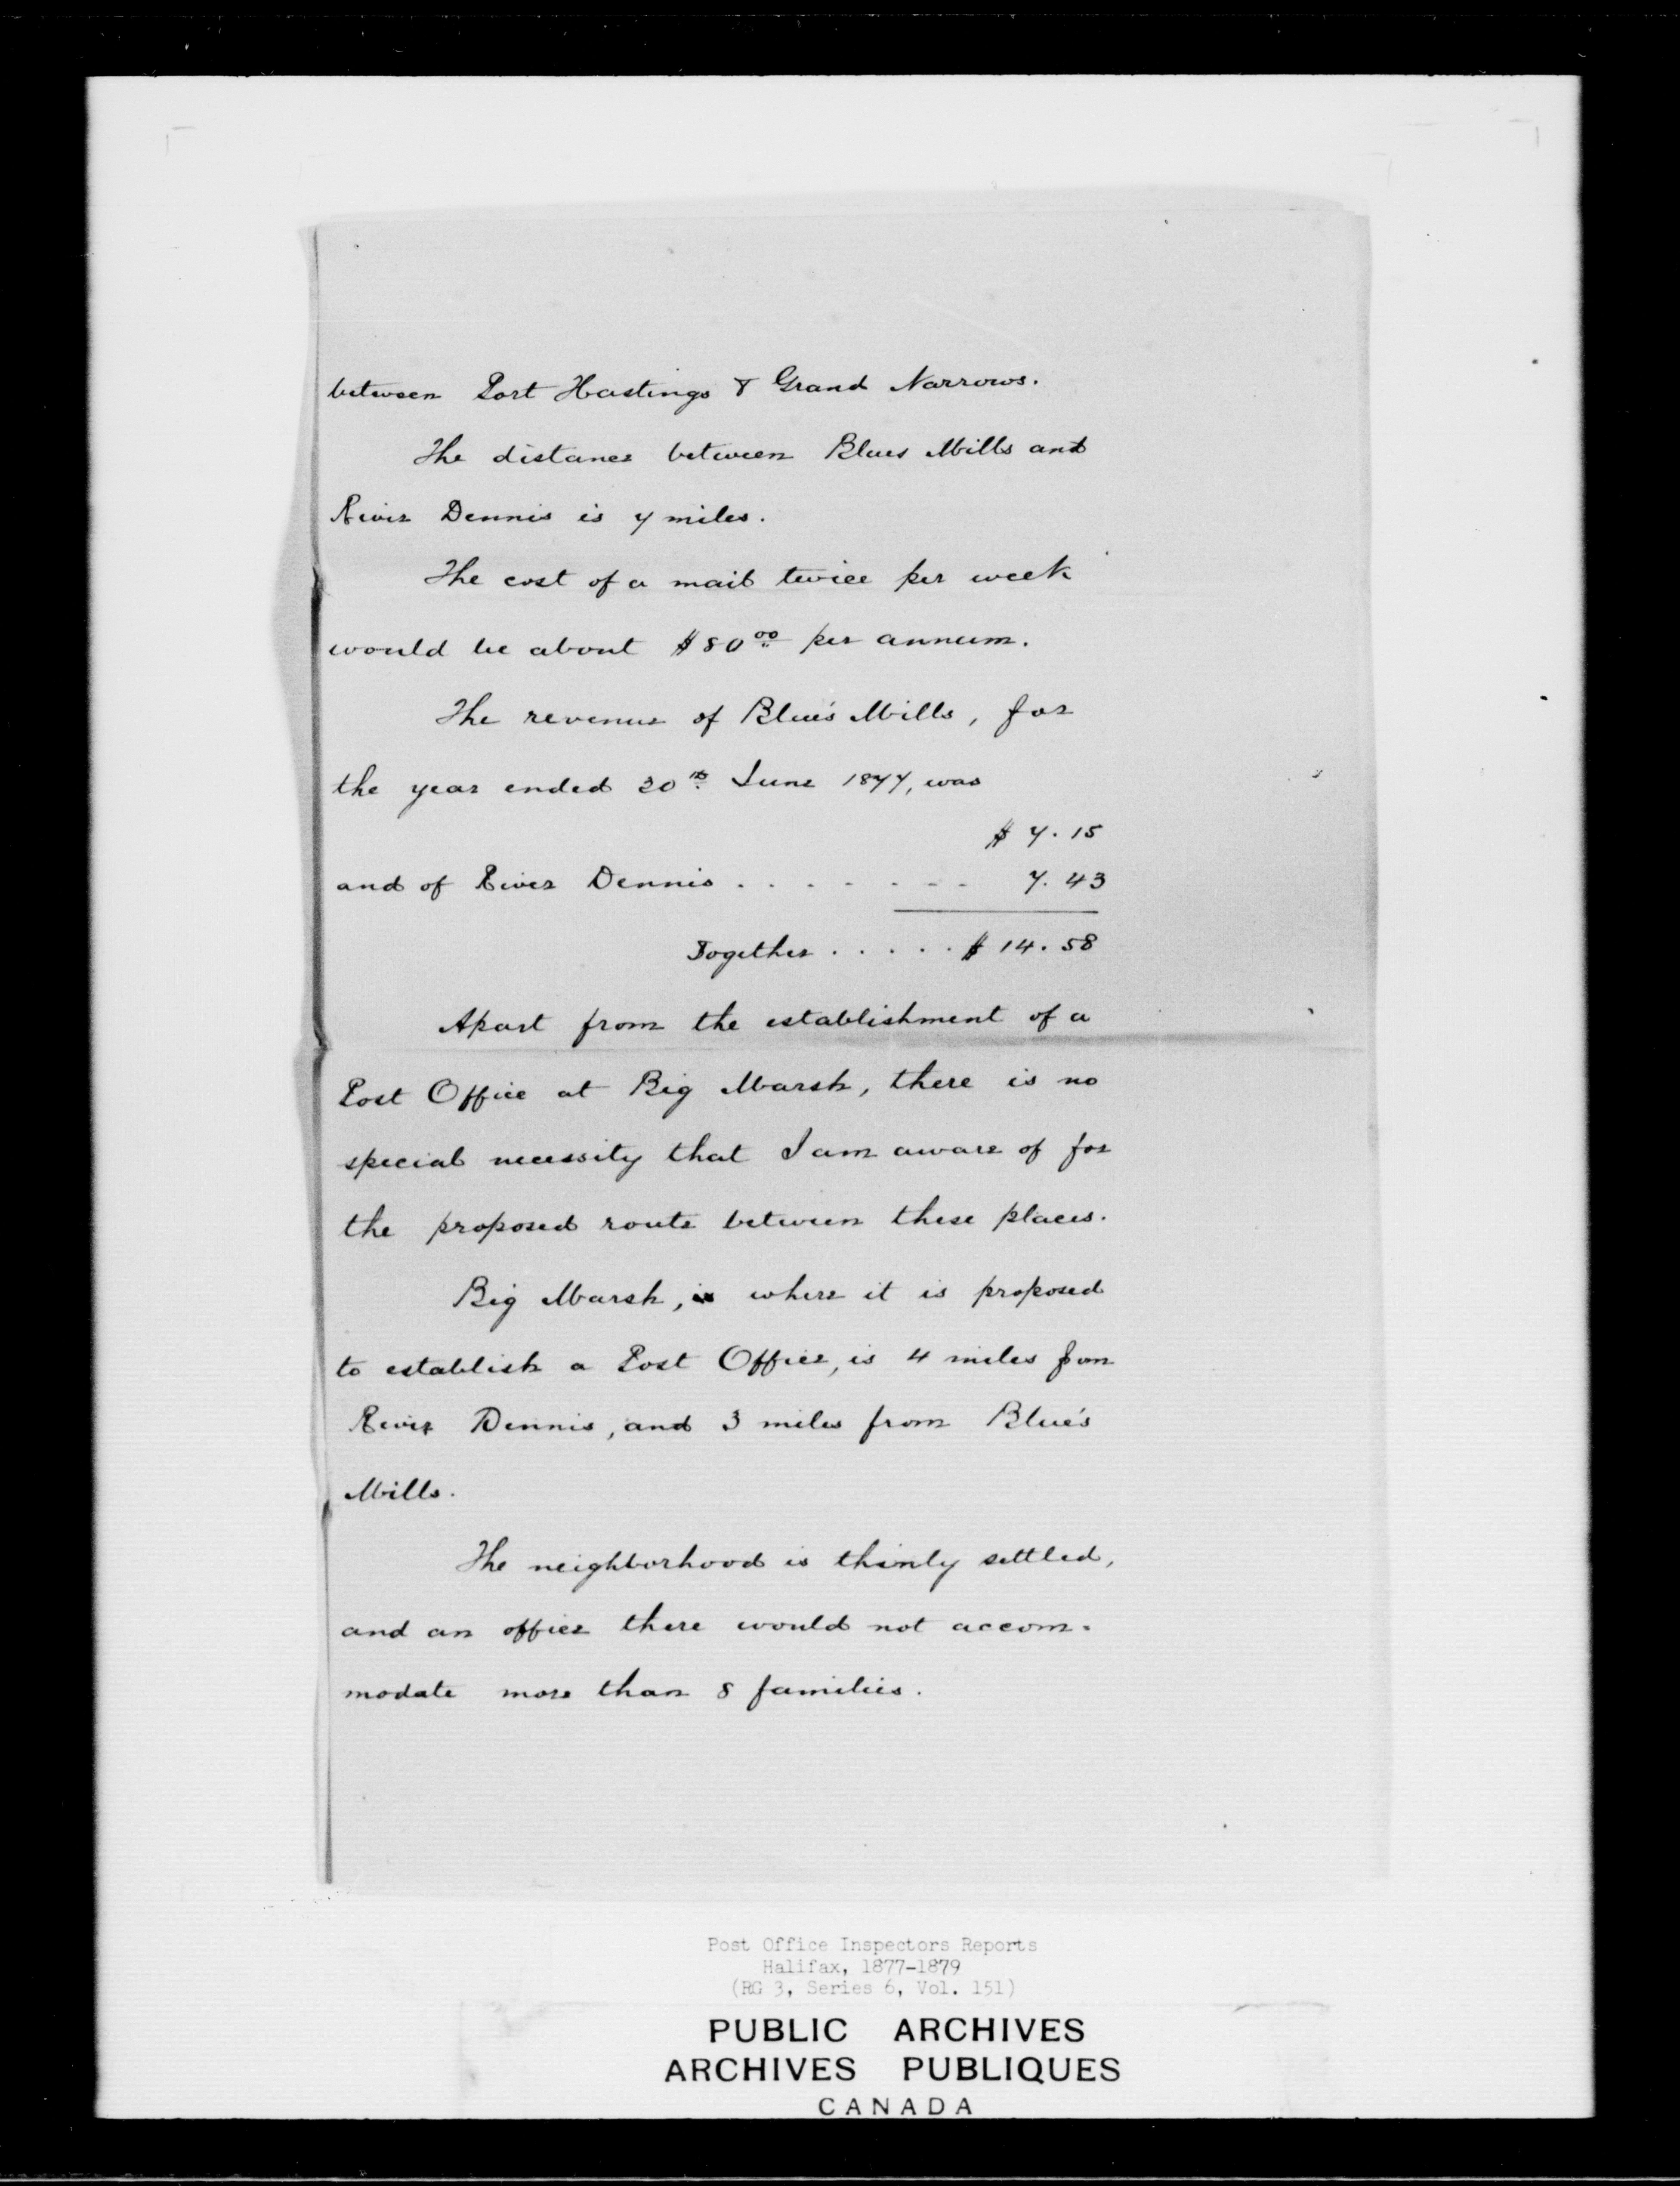 between Port Hastings & Grand Narrows.
The distance between Blues Mills and
River Dennis is 7 miles.
The cost of a mail twice per week
would be about $80.00 per annum.
The revenue of Blue's Mills, for
the year ended 30th June 1877, was
$ 7.15
and of River Dennis . . . . . . . . 7.43
Together . . . . . $ 14.58
Apart from the establishment of a
Post Office at Big Marsh, there is no
special necessity that I am aware of for
the proposed route between these places.
Big Marsh, where it is proposed
to establish a Post Office, is 4 miles from
River Dennis, and 3 miles from Blue's
Mills.
The neighborhood is thinly settled,
and an office there would not accom-
modate more than 8 families.
Post Office Inspectors Reports
Halifax, 1877-1879
(RG 3, Series 6, Vol. 151)
PUBLIC ARCHIVES
ARCHIVES PUBLIQUES
CANADA